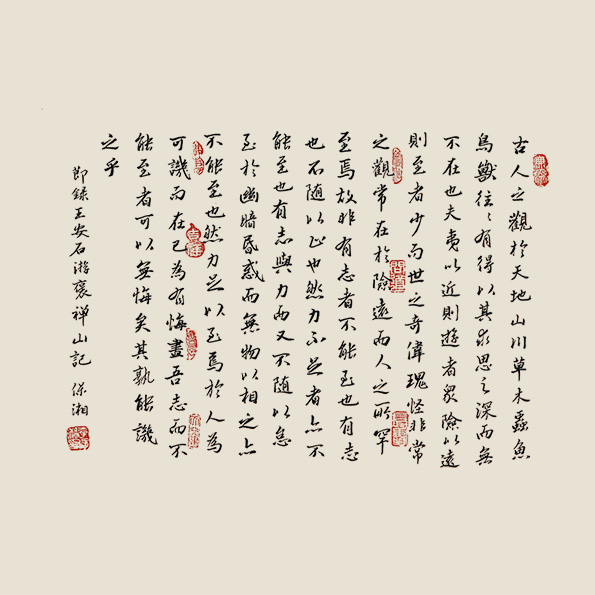 古人之觀於天地山川草木蟲魚
鳥獸往々有得以其求思之深而無
不在也夫夷以近則遊者眾險以遠
則至者少而世之奇偉瑰怪非常
之觀常在於險遠而人之所罕
至焉故非有志者不能至也有志
也不随以止也然力不足者亦不
能至也有志與力而又不随以怠
至於幽暗昏惑而無物以相之亦
不能至也然力足以至焉於人為
可譏而在己為有悔盡吾志而不
能至者可以無悔矣其孰能譏
之乎
即録王安石游褒禅山記 保湘